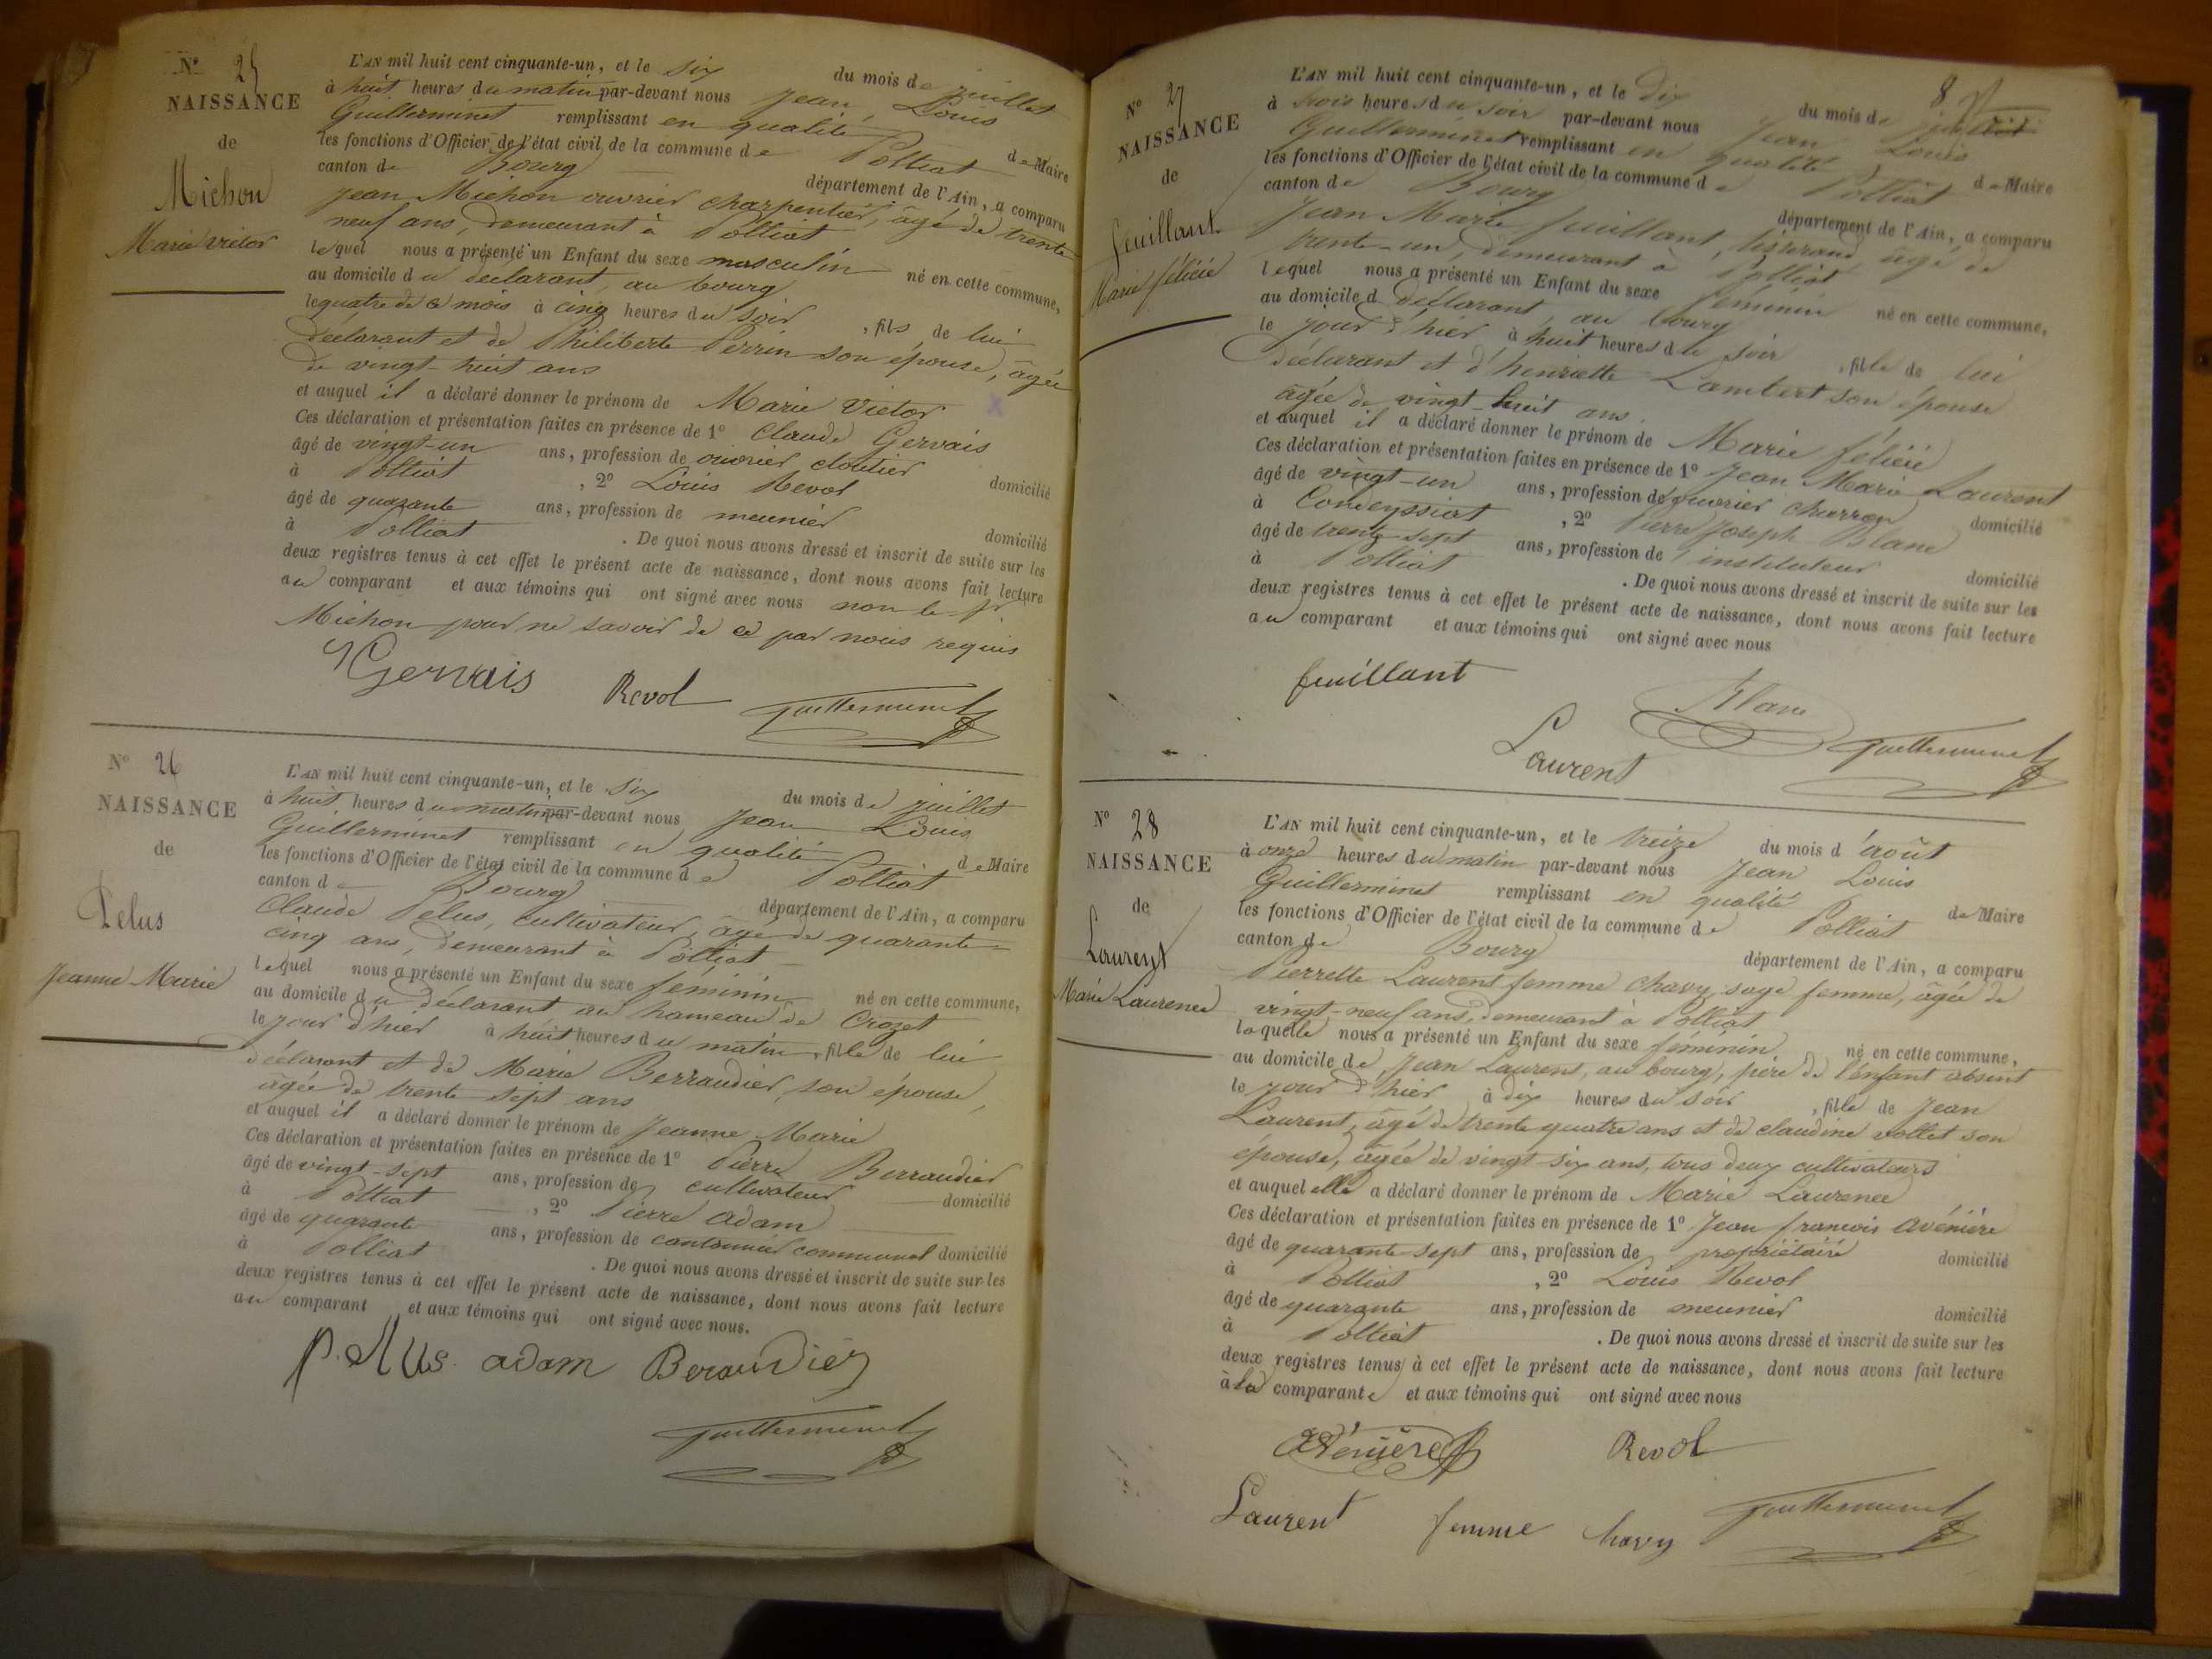 N° 25
NAISSANCE
de
Michon
Marie Victor
L'AN mil huit cent cinquante-un, et le six du mois de juillet
à huit heures du matin par-devant nous Jean Louis
Guillerminet remplissant en qualité de Maire
les fonctions d'Officier de l'état civil de la commune de Polliat
canton de Bourg département de l'Ain, a comparu
Jean Michon ouvrier charpentier, âgé de trente
neuf ans, demeurant à Polliat
lequel nous a présenté un Enfant du sexe masculin né en cette commune,
au domicile du déclarant, au bourg
le quatre de ce mois à cinq heures du soir, fils de lui
déclarant et de Philiberte Perrin son épouse, âgée
de vingt-huit ans
et auquel il a déclaré donner le prénom de Marie Victor
Ces déclaration et présentation faites en présence de 1° Claude Gervais
âgé de vingt-un ans, profession de ouvrier cloutier domicilié
à Polliat, 2° Louis Revol
âgé de quarante ans, profession de meunier domicilié
à Polliat. De quoi nous avons dressé et inscrit de suite sur les
deux registres tenus à cet effet le présent acte de naissance, dont nous avons fait lecture
au comparant et aux témoins qui ont signé avec nous non le sr
Michon pour ne savoir de ce par nous requis
Gervais Revol Guillerminet
N° 26
NAISSANCE
de
Pelus
Jeanne Marie
L'AN mil huit cent cinquante-un, et le six du mois de juillet
à huit heures du matin par-devant nous Jean Louis
Guillerminet remplissant en qualité de Maire
les fonctions d'Officier de l'état civil de la commune de Polliat
canton de Bourg département de l'Ain, a comparu
Claude Pelus, cultivateur, âgé de quarante
cinq ans, demeurant à Polliat
lequel nous a présenté un Enfant du sexe féminin né en cette commune,
au domicile du déclarant au hameau de Crozet
le jour d'hier à huit heures du matin, fille de lui
déclarant et de Marie Berraudier, son épouse,
âgée de trente sept ans
et auquel il a déclaré donner le prénom de Jeanne Marie
Ces déclaration et présentation faites en présence de 1° Pierre Berraudier
âgé de vingt-sept ans, profession de cultivateur domicilié
à Polliat, 2° Pierre Adam
âgé de quarante ans, profession de cantonnier communal domicilié
à Polliat. De quoi nous avons dressé et inscrit de suite sur les
deux registres tenus à cet effet le présent acte de naissance, dont nous avons fait lecture
au comparant et aux témoins qui ont signé avec nous.
pellus adam Beraudier
Guillerminet
8
N° 27
NAISSANCE
de
feuillant
Marie félicie
L'AN mil huit cent cinquante-un, et le dix du mois de juillet
à trois heures du soir par-devant nous Jean Louis
Guillerminet remplissant en qualité de Maire
les fonctions d'Officier de l'état civil de la commune de Polliat
canton de Bourg département de l'Ain, a comparu
Jean Marie feuillant, tisserand, âgé de
trente-un, demeurant à Polliat
lequel nous a présenté un Enfant du sexe féminin né en cette commune,
au domicile d déclarant, au bourg
le jour d'hier à huit heures du soir, fille de lui
déclarant et d'henriette Lambert son épouse
âgée de vingt-huit ans
et auquel il a déclaré donner le prénom de Marie félicie
Ces déclaration et présentation faites en présence de 1° Jean Marie Laurent
âgé de vingt-un ans, profession de ouvrier charron domicilié
à Condeyssiat, 2° Pierre Joseph Blanc
âgé de trente sept ans, profession de instituteur domicilié
à Polliat. De quoi nous avons dressé et inscrit de suite sur les
deux registres tenus à cet effet le présent acte de naissance, dont nous avons fait lecture
au comparant et aux témoins qui ont signé avec nous
feuillant Blanc
Laurent Guillerminet
N° 28
NAISSANCE
de
Laurent
Marie Laurence
L'AN mil huit cent cinquante-un, et le treize du mois d'août
à onze heures du matin par-devant nous Jean Louis
Guillerminet remplissant en qualité de Maire
les fonctions d'Officier de l'état civil de la commune de Polliat
canton de Bourg département de l'Ain, a comparu
Pierrette Laurent femme chavy, sage femme, âgée de
vingt-neuf ans, demeurant à Polliat
laquelle nous a présenté un Enfant du sexe féminin né en cette commune,
au domicile de Jean Laurent, au bourg, père de l'enfant absent
le jour d'hier à dix heures du soir, fille de Jean
Laurent, âgé de trente quatre ans et de claudine vollet son
épouse, âgée de vingt six ans, tous deux cultivateurs
et auquel elle a déclaré donner le prénom de Marie Laurence
Ces déclaration et présentation faites en présence de 1° Jean francois avénière
âgé de quarante-sept ans, profession de propriétaire domicilié
à Polliat, 2° Louis Revol
âgé de quarante ans, profession de meunier domicilié
à Polliat. De quoi nous avons dressé et inscrit de suite sur les
deux registres tenus à cet effet le présent acte de naissance, dont nous avons fait lecture
à la comparante et aux témoins qui ont signé avec nous
avénière Revol
Laurent femme chavy Guillerminet